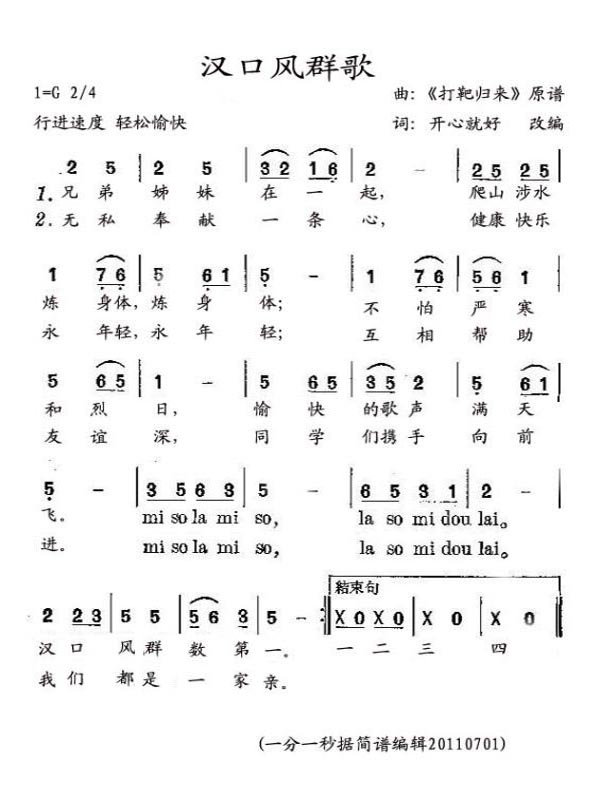 汉口风群歌
1=G 2/4 曲:《打靶归来》原谱
行进速度 轻松愉快 词: 开心就好 改编
2 5 | 2 5 | 3 2 1 6 | 2 - | 2 5 2 5 |
1.兄 弟 姊 妹 在 一 起, 爬山 涉水
2.无 私 奉 献 一 条 心, 健康 快乐
1 7 6 | 5 6 1 | 5 - | 1 7 6 | 5 6 1 |
炼 身体,炼 身 体; 不 怕 严 寒
永 年轻,永 年 轻; 互 相 帮 助
5 6 5 | 1 - | 5 6 5 | 3 5 2 | 5 6 1 |
和 烈 日, 愉 快 的歌 声 满 天
友 谊 深, 同 学 们携 手 向 前
5 - | 3 5 6 3 | 5 - | 6 5 3 1 | 2 - |
飞。 mi so la mi so, la so mi dou lai。
进。 mi so la mi so, la so mi dou lai。
結束句
2 2 3 | 5 5 | 5 6 3 | 5 - :‖ X 0 X 0 | X 0 | X 0 ‖
汉 口 风 群 数 第 一。 一 二 三 四
我 们 都 是 一 家 亲。
(一分一秒据简谱编辑20110701)